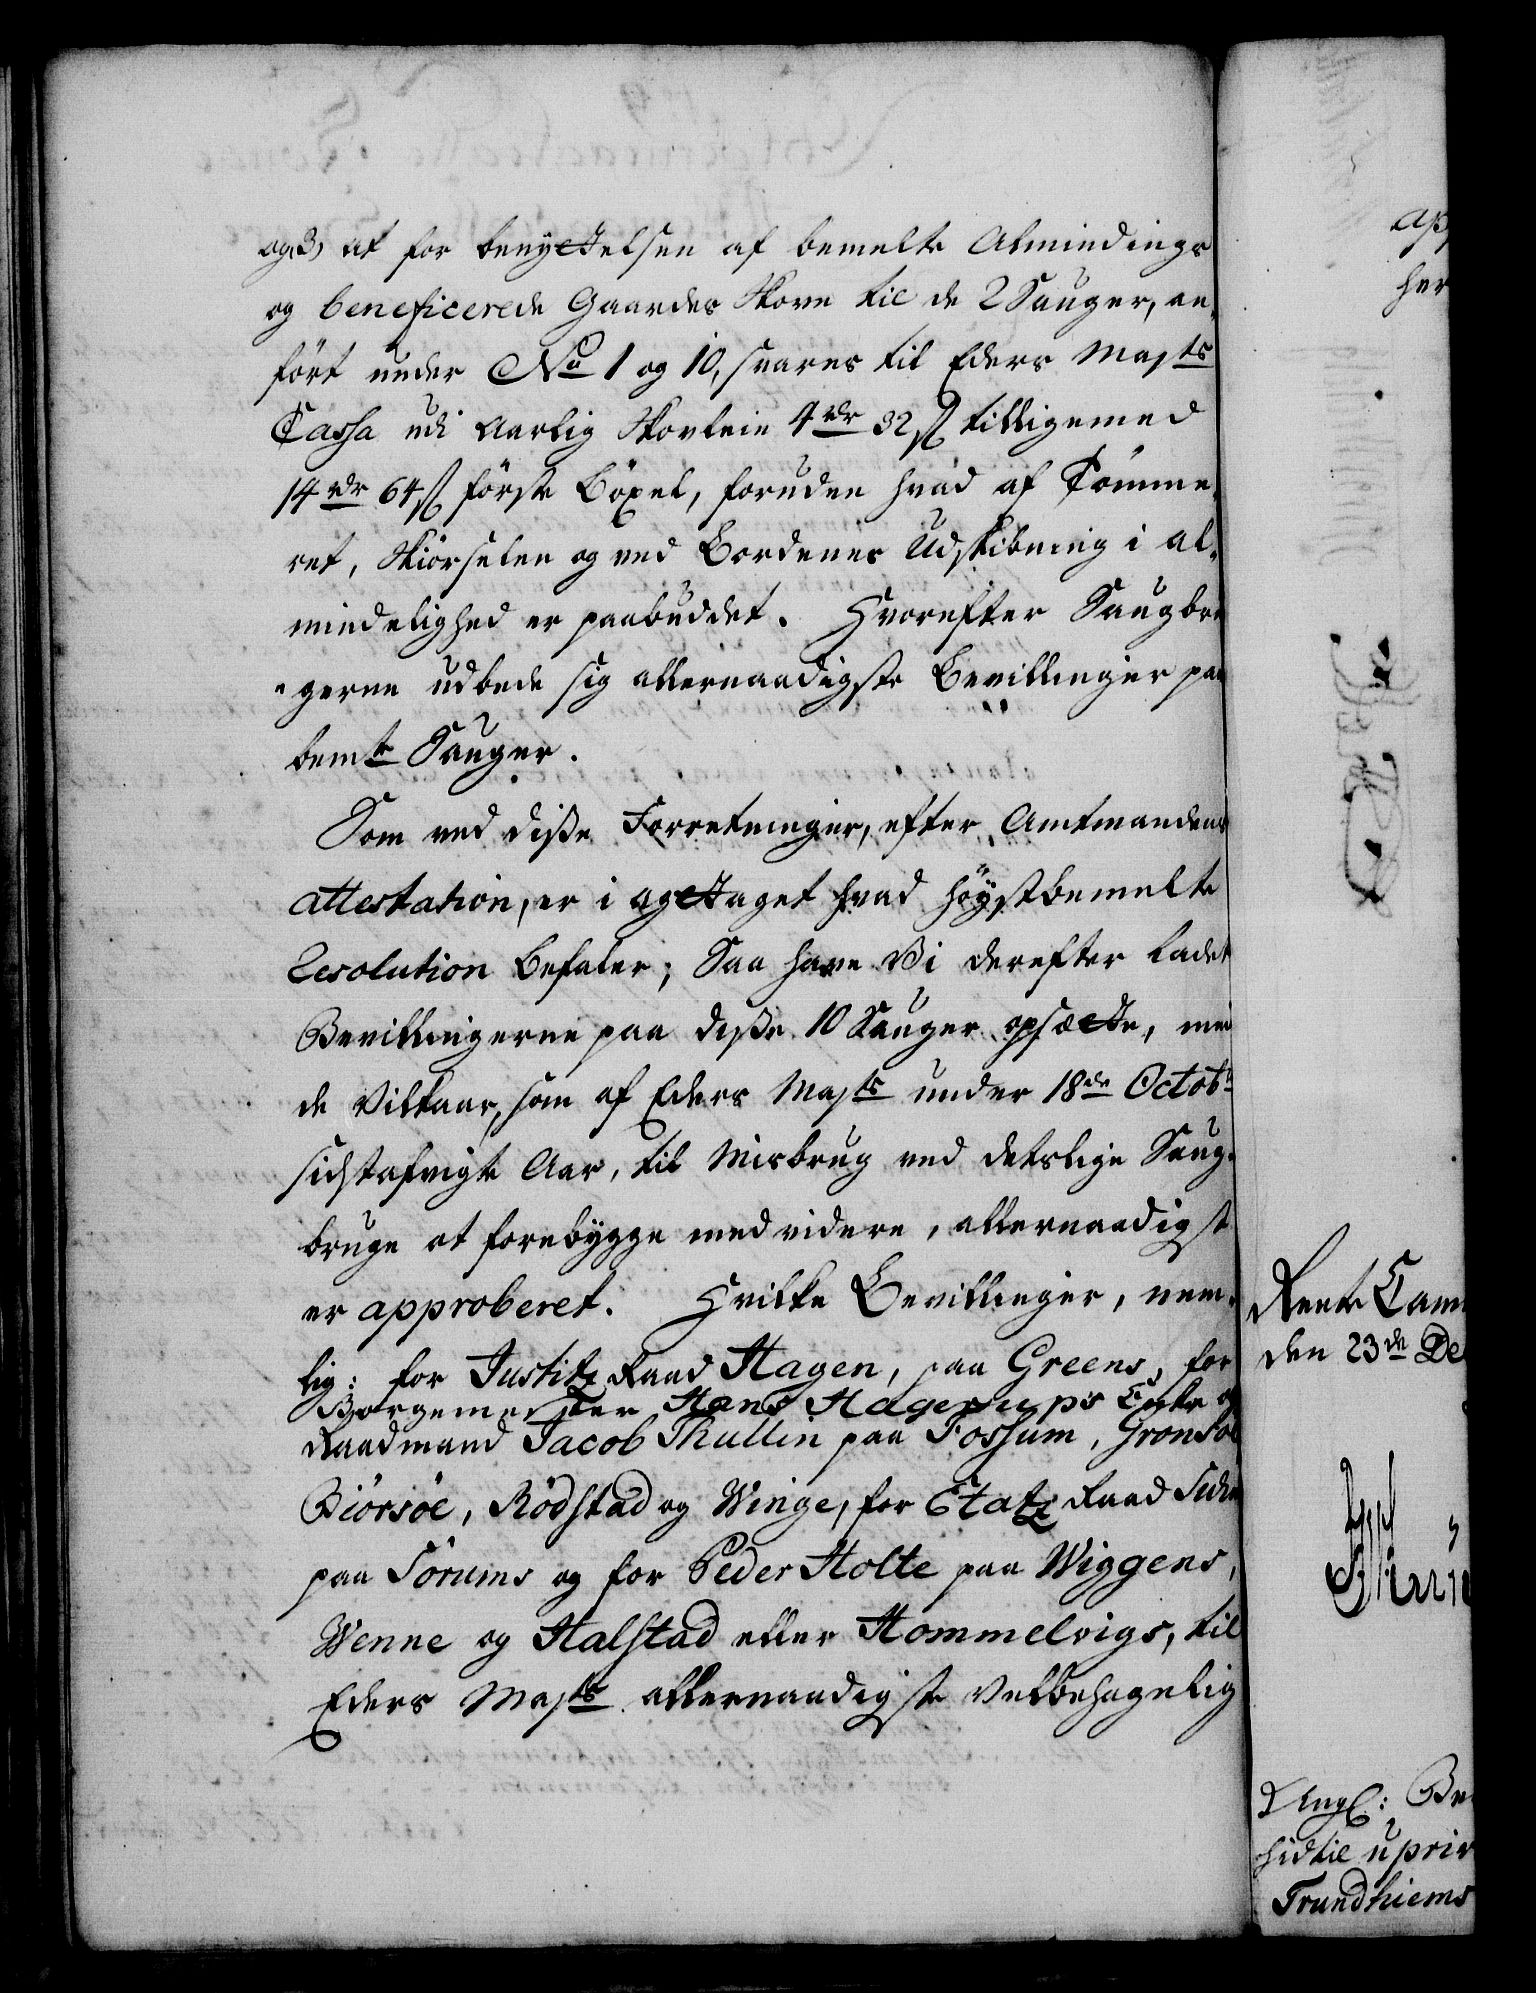 og 3) at for benyttelsen af bemelte Almindings
og beneficerede Gaardes Skove til de 2 Sauger, an-
fört under No 1 og 10, svares til Eders Majts
Cassa udi Aarlig Skovleie 4 rdr 32 s tilligemed
14 rdr 64 s förste Böxel, foruden hvad af Tömme-
ret, Kiörselen og ved Bordenes Udskibning i al-
mindelighed er paabuddet. Hvorefter Saugbru-
gerne udbede sig allernaadigste Bevillinger paa
bemte Sauger.
Som ved diße Forretninger, efter Amtmandens
attestation, er i agttaget hvad höystbemelte
Resolution befaler; Saa have Vi derefter ladet
Bevillingerne paa diße 10 Sauger opsætte, med
de Vilkaar, som af Eders Majts under 18de Octobr
sidstafvigte Aar, til Misbrug ved deslige Saug-
bruge at forebygge med videre, allernaadigst
er approberet. Hvilke Bevillinger, nem-
lig: for Justitz Raad Hagen, paa Greens, for
Borgemester Hans Hagerups Enke og
Raadmand Jacob Thullin paa Foshum, Gronsöe
Biörsöe, Rödstad og Winge, for Etatz Raad
paa Sörums og for Peder Holte paa Wiggens,
Wenne og Halstad eller Hommelvigs, til
Eders Majts allernaadigste Velbehagelig
her
Rente Cam
den 23de De
hidtil upriv
Trundhiems